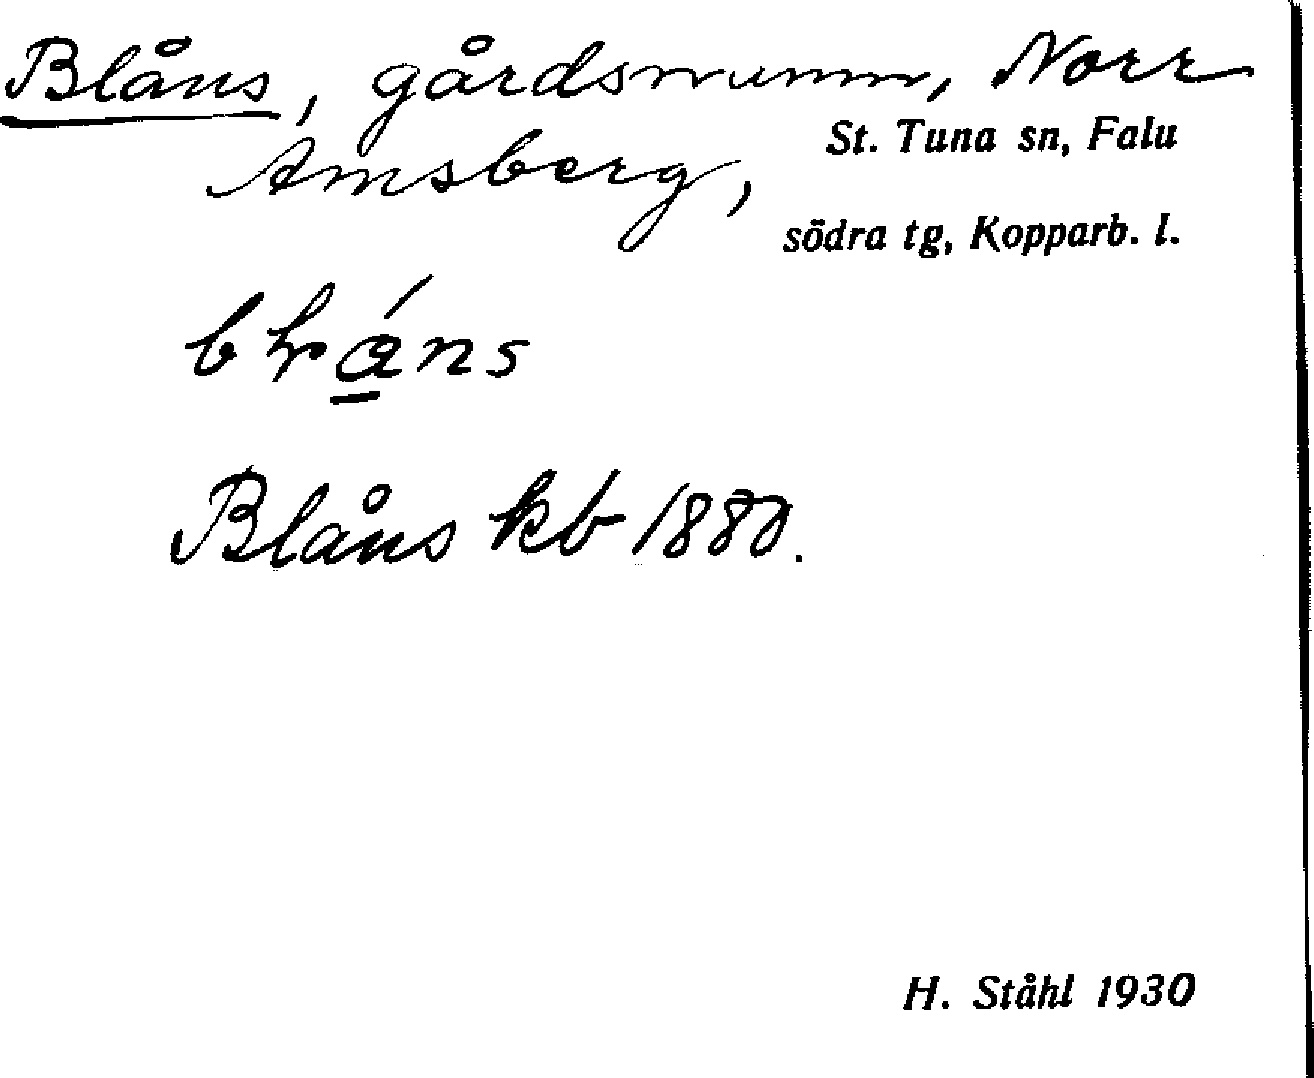 Blåns, gårdsnamn, Norr
Amsberg,
St. Tuna sn, Falu
södra tg, Kopparb. l.
Blåns kb 1880.
H. Ståhl 1930